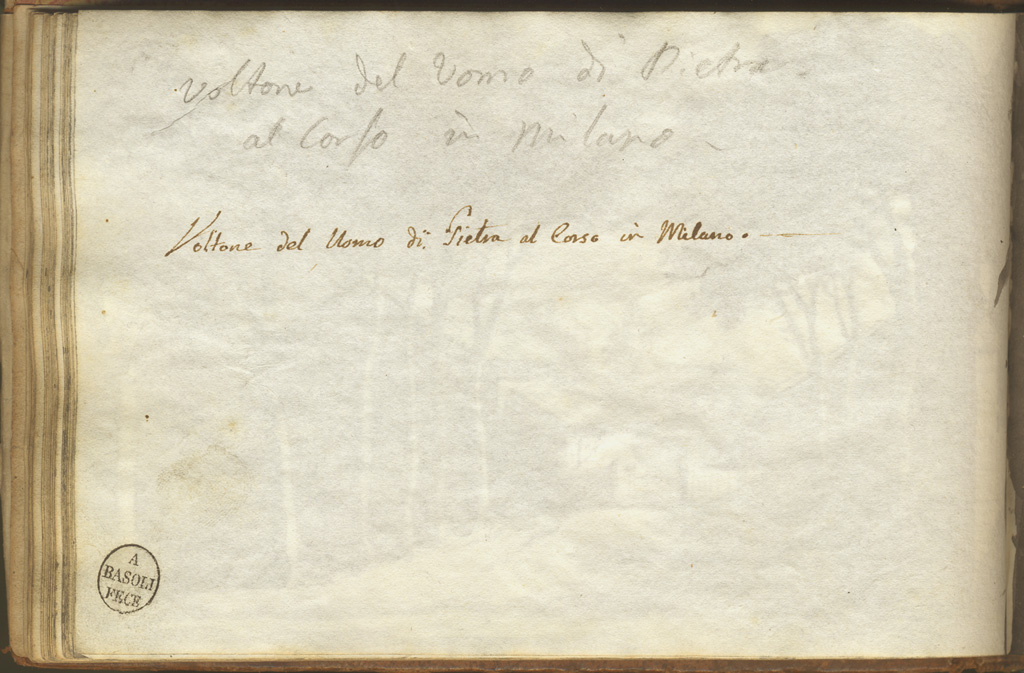 Voltone del Uomo di Pietra
al Corso in Milano
Voltone del Uomo di Pietra al Corso in Milano.
A
BASOLI
FECE